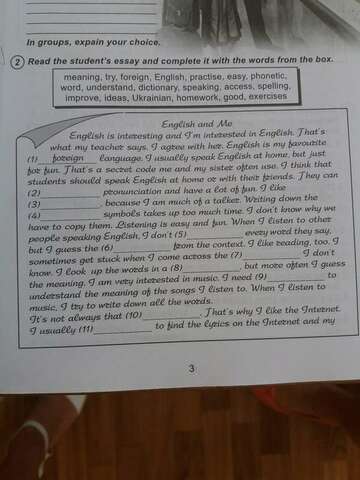 In groups, expain your choice.
2 Read the student's essay and complete it with the words from the box.
meaning, try, foreign, English, practise, easy, phonetic,
word, understand, dictionary, speaking, access, spelling,
improve, ideas, Ukrainian, homework, good, exercises
English and Me
English is interesting and I'm interested in English. That's
what my teacher says. I agree with her. English is my favourite
(1) foreign language. I usually speak English at home, but just
for fun. That's a secret code me and my sister often use. I think that
students should speak English at home or with their friends. They can
(2) pronunciation and have a lot of fun. I like
(3) , because I am much of a talker. Writing down the
(4) symbols takes up too much time. I don't know why we
have to copy them. Listening is easy and fun. When I listen to other
people speaking English, I don't (5) every word they say,
but I guess the (6) from the context. I like reading, too. I
sometimes get stuck when I come across the (7) I don't
know. I look up the words in a (8) , but more often I guess
the meaning. I am very interested in music. I need (9) to
understand the meaning of the songs I listen to. When I listen to
music, I try to write down all the words.
It's not always that (10) . That's why I like the Internet.
I usually (11) to find the lyrics on the Internet and my
3